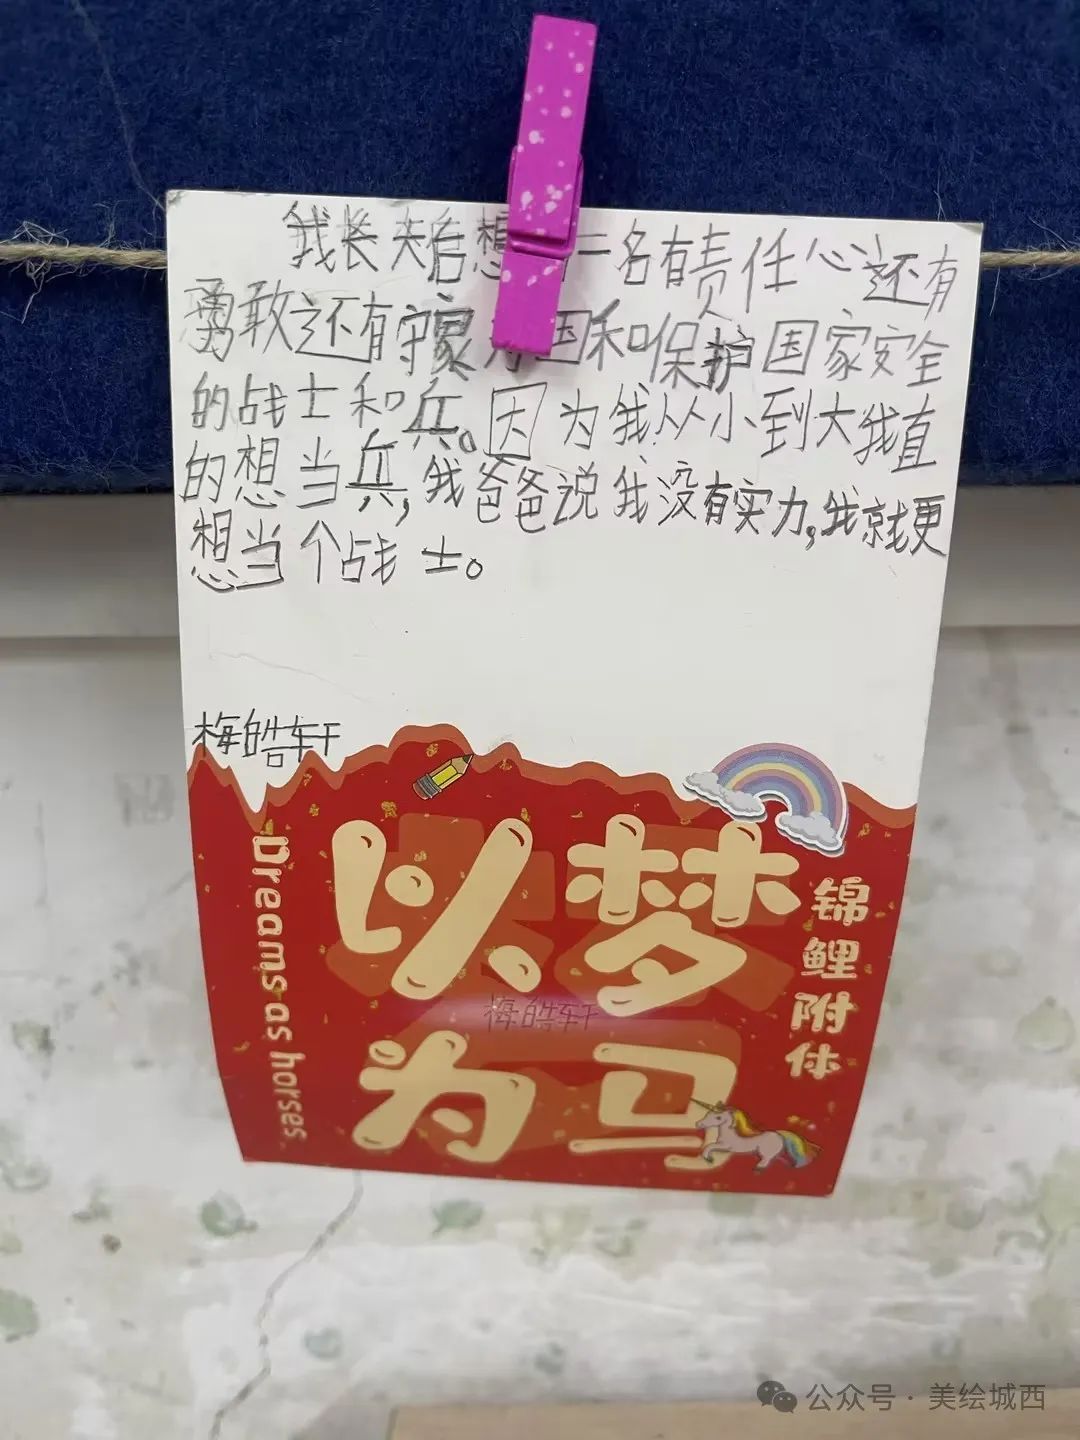 我长大后想 一名有责任心还有
勇敢还有守家 国和保护国家安全
的战士和兵。因为我从小到大我直
的想当兵,我爸爸说我没有实力,我就更
想当个战士。
梅皓轩
以梦
为马
锦鲤附体
Dreams as horses
梅皓轩
公众号·美绘城西